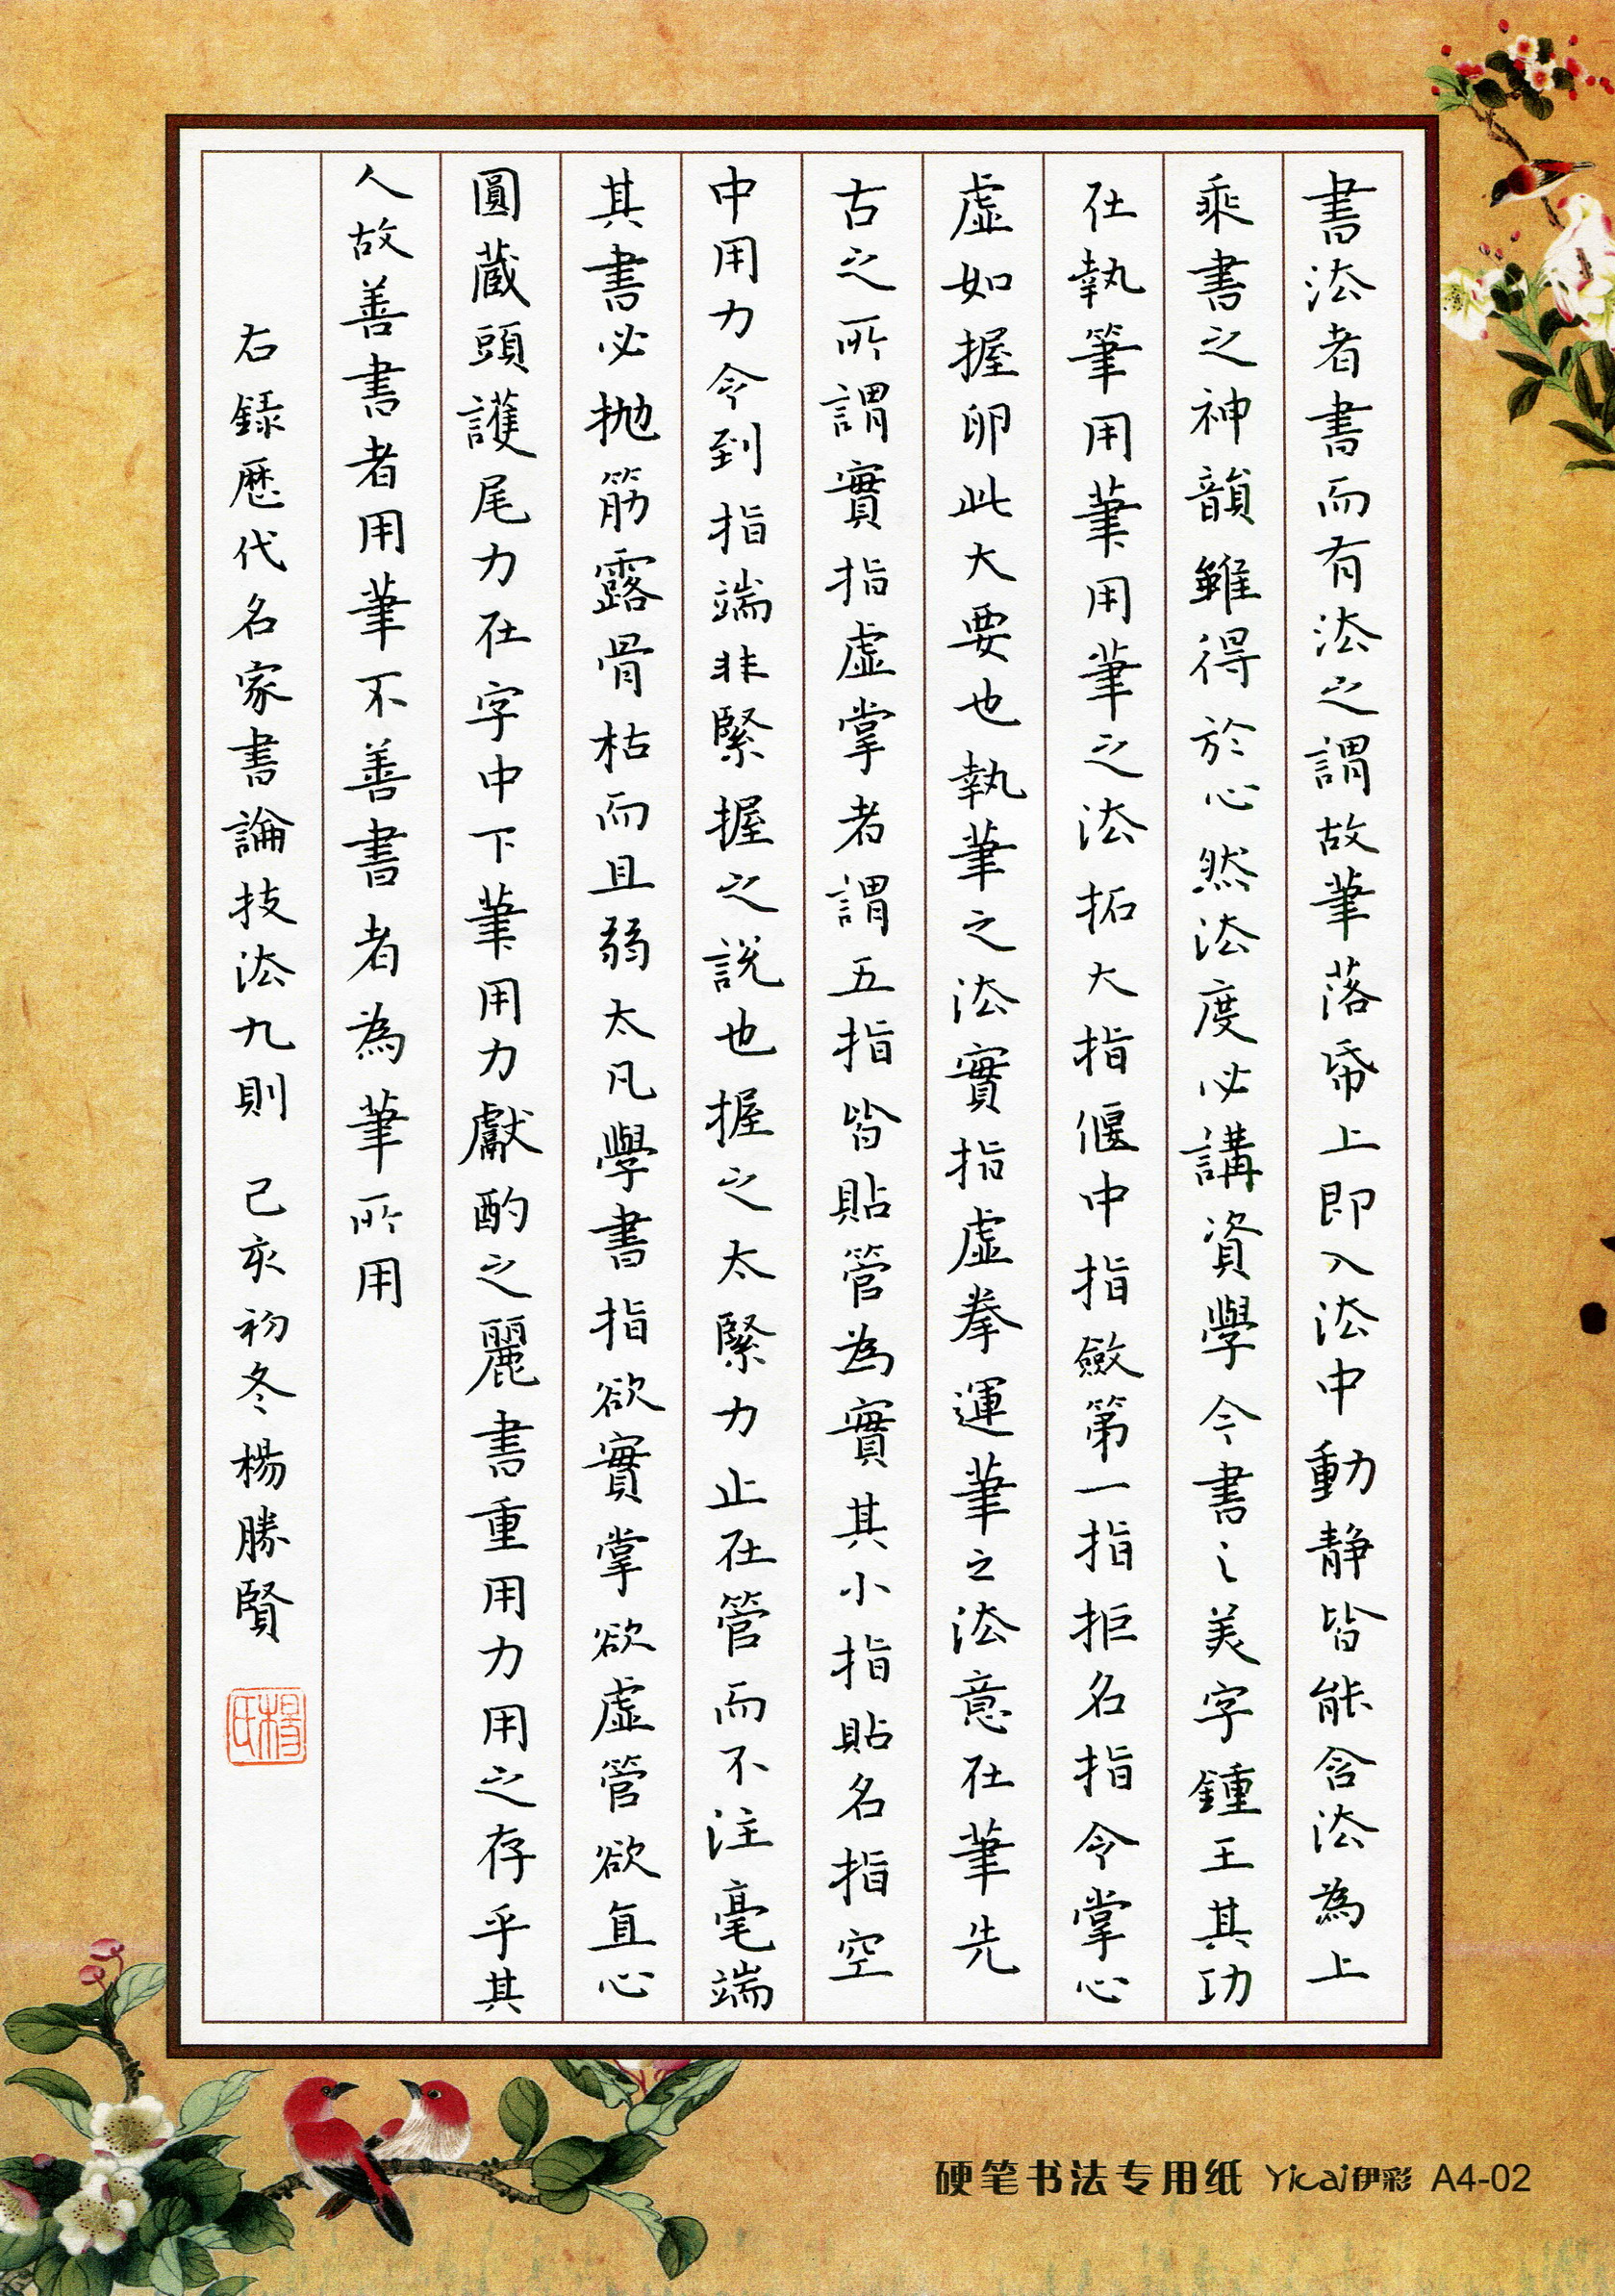 書法者書而有法之謂故筆落帋上即入法中動静皆能含法為上
乘書之神韻雖得於心然法度必講資學今書之美字鍾王其功
在執筆用筆用筆之法拓大指偃中指斂第一指拒名指令掌心
虛如握卵此大要也執筆之法實指虛拳運筆之法意在筆先
古之所謂實指虛掌者謂五指皆貼管為實其小指貼名指空
中用力令到指端非緊握之說也握之太緊力止在管而不注毫端
其書必拋筋露骨枯而且弱太凡學書指欲實掌欲虛管欲直心
圓蔵頭護尾力在字中下筆用力獻酌之麗書重用力用之存乎其
人故善書者用筆不善書者為筆所用
右錄歷代名家書論技法九則 己亥初冬楊勝賢
楊氏
硬笔书法专用纸 Yicai伊彩 A4-02